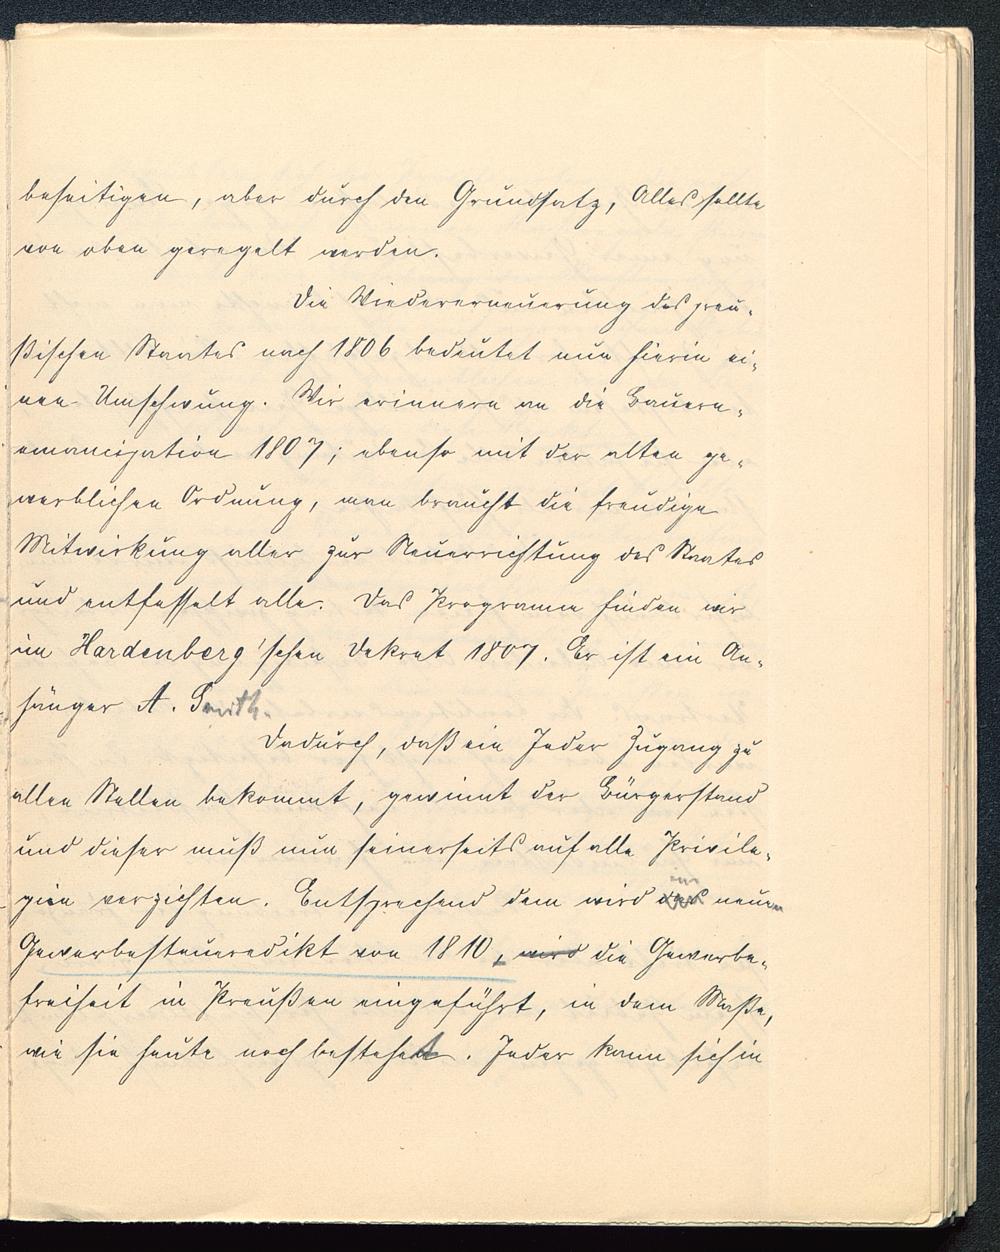 beseitigen, aber durch den Grundsatz, Alles sollte
von oben geregelt werden.
Die Wiedererneuerung des preu-
ßischen Staates nach 1806 bedeutet nun hierin ei-
nen Umschwung. Wir erinnern an die Bauern-
emancipation 1807; ebenso mit der alten ge-
werblichen Ordnung, man braucht die freudige
Mitwirkung aller zur Neuerrichtung des Staates
und entfesselt alle. Das Programm finden wir
im Hardenberg'schen Dekret 1807. Er ist ein An-
hänger A. Smith.
Dadurch, daß ein Jeder Zugang zu
allen Stellen bekommt, gewinnt der Bürgerstand
und dieser muß nun seinerseits auf alle Privile-
gien verzichten. Entsprechend dem wird im neuen
Gewerbesteueredikt von 1810, wird die Gewerbe-
freiheit in Preußen eingeführt, in dem Maße,
wie sie heute noch besteht. Jeder kann sich in